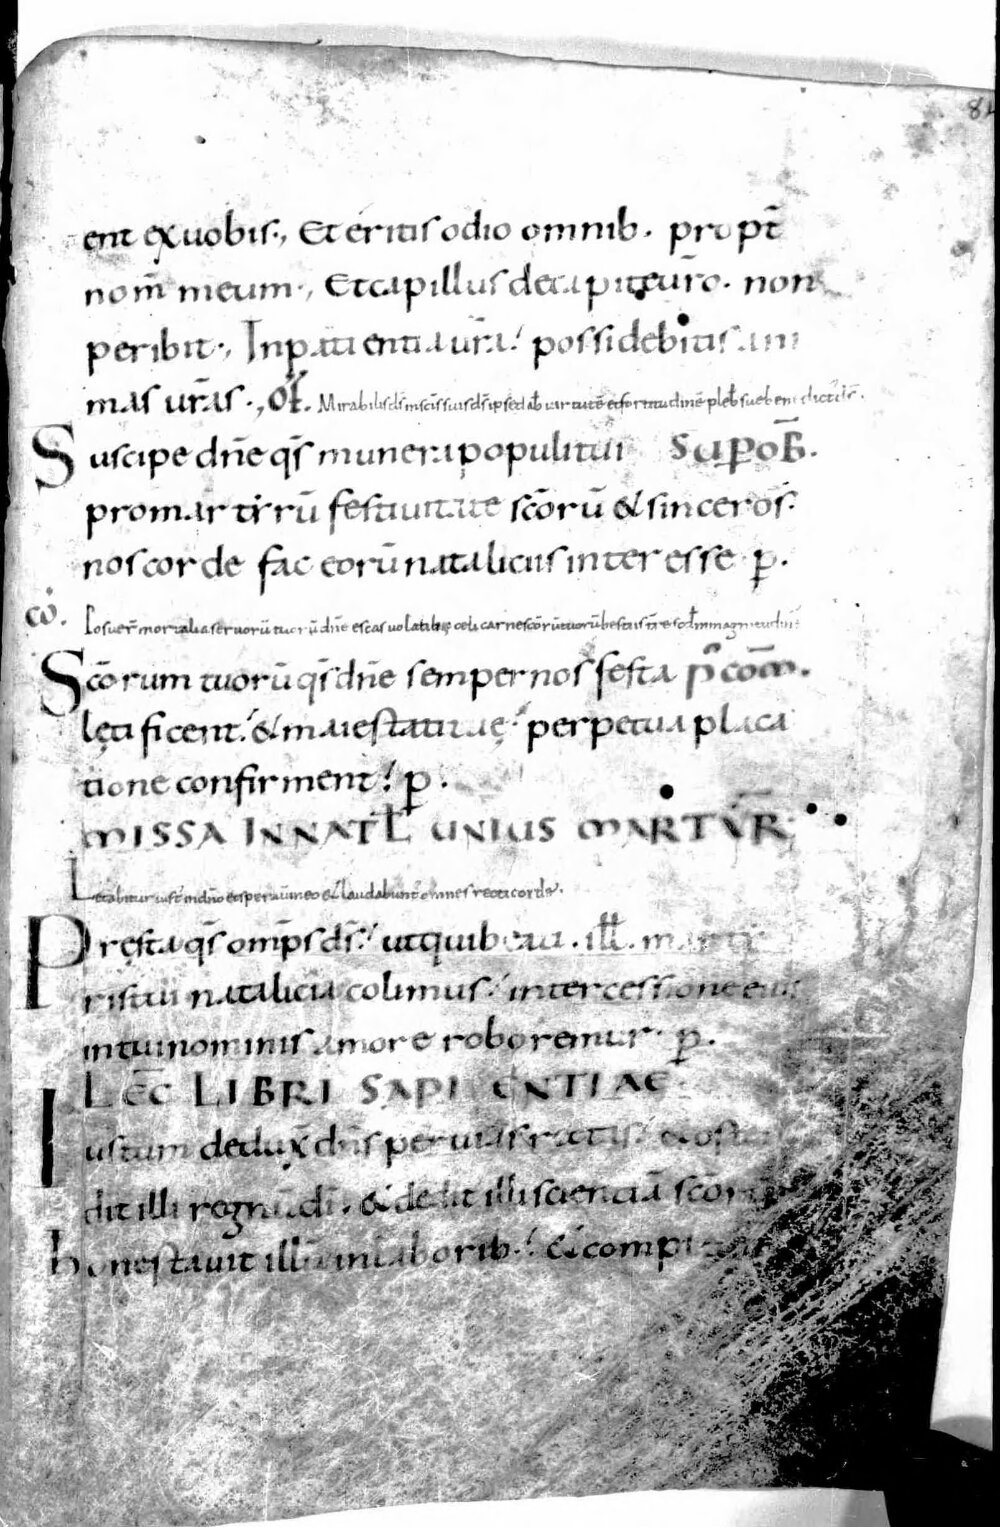 84
ent ex uobis·, Et eritis odio omnib· propt̄
nom̄ meum·, Et capillus de capite ur̄o· non
peribit·, In patientia ur̄a· possidebitis ani
mas ur̄as·, Of̄. Mirabilis ds̄ in scīs suis ds̄ isrł ipse dab̄ uirtutē et fortitudinē plebi suę benedictus ds̄·
Suscipe dn̄e qs̄ munera populi tui SUP OB̄·
pro martyrū festiuitate scōrū & sinceros·
nos corde fac eorū nataliciis interesse p̄·
cō. Posuer̄ mortalia seruorū tuorū dn̄e escas uolatilib; celi carnes scōrū tuorū bestiis tr̄e scd̄m magnitudinē
Scōrum tuorū qs̄ dn̄e semper nos festa P̄ COM̄·
lętificent· & maiestati tuae· perpetua placa
tione confirment· p̄·
MISSA IN NATL̄ UNIUS MARTYR̄
Letabitur iust̄ in dn̄o et sperau̅ in eo & laudabunt̄ omnes recti corde·
Pręsta qs̄ omp̄s ds̄· ut qui beati· ill̄· marty
ris tui natalicia colimus· intercessione eius
in tui nominis amore roboremur· p̄·
LEC̄ LIBRI SAPIENTIAE
Iustum dedux̄ dn̄s per uias rectas· & osten
dit illi regnū dī· & dedit illi scientiā scōrū
honestauit illū in laborib·